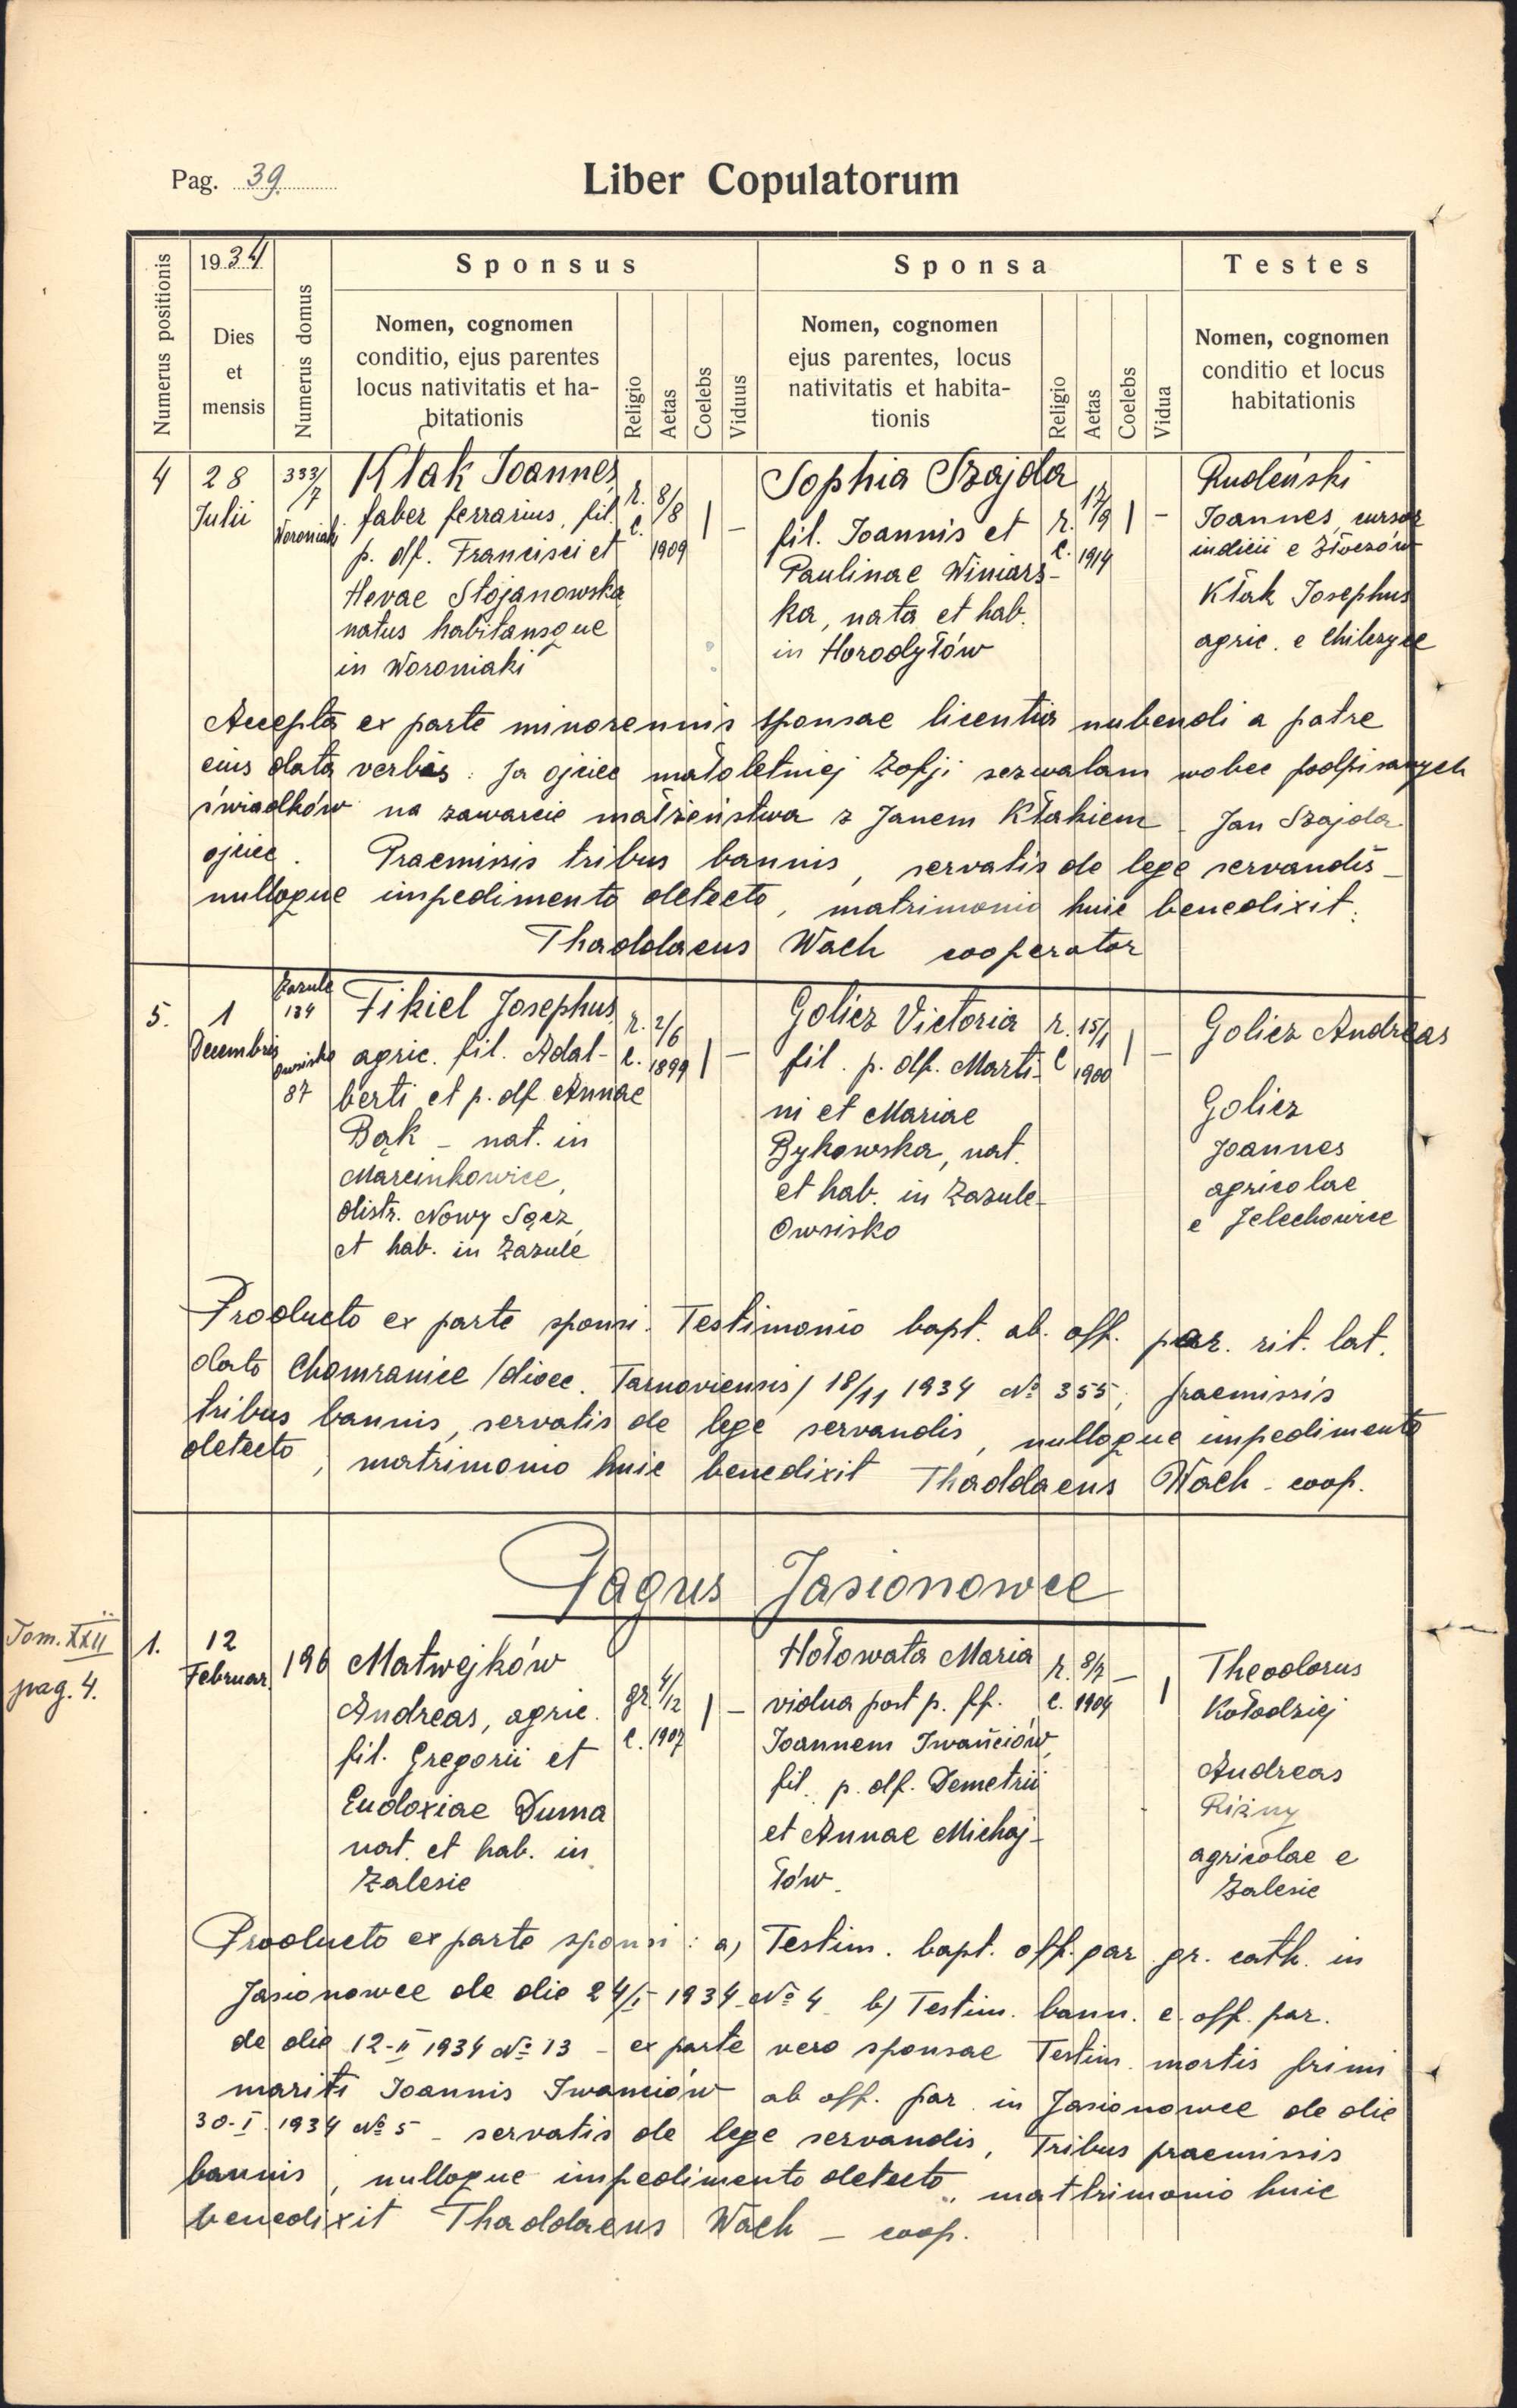 Pag. 39.
Liber Copulatorum
Numerus positionis
1934
Dies
et
mensis
Numerus domus
Sponsus
Nomen, cognomen
conditio, ejus parentes
locus nativitatis et ha-
bitationis
Religio
Aetas
Coelebs
Viduus
Sponsa
Nomen, cognomen
ejus parentes, locus
nativitatis et habita-
tionis
Religio
Aetas
Coelebs
Vidua
Testes
Nomen, cognomen
conditio et locus
habitationis
4
28
Julii
333/7
Woroniaki
Kłak Joannes
faber ferrarius, fil.
p. df. Francisci et
Hevae Stojanowska
natus habitansque
in Woroniaki
r.
c.
8/8
1909
| –
Sophia Szajda
fil. Joannis et
Paulinae Winiars-
ka, nata et hab.
in Horodyłów
r.
c.
17/9
1914
| –
Rudeński
Joannes, cursor
iudicii e Złoczów
Kłak Josephus
agric. e Chilczyce
Accepta ex parte minorennis sponsae licentia nubendi a patre
eius data verbis: Ja ojciec małoletniej Zofji zezwalam wobec podpisanych
świadków na zawarcie małżeństwa z Janem Kłakiem – Jan Szajda
ojciec. Praemissis tribus bannis, servatis de lege servandis –
nulloque impedimento detecto, matrimonio huic benedixit:
Thaddaeus Wach cooperator
5.
1
Decembris
Zazule
184
Owsisko
87
Fikiel Josephus
agric. fil. Adal-
berti et p. df. Annae
Bąk – nat. in
Marcinkowice,
distr. Nowy Sącz,
et hab. in Zazule
r.
c.
2/6
1899
| –
Golicz Victoria
fil. p. df. Marti-
ni et Mariae
Bykowska, nat.
et hab. in Zazule-
Owsisko
r.
c
15/1
1900
| –
Golicz Andreas
Golicz
Joannes
agricolae
e Jelechowice
Producto ex parte sponsi: Testimonio bapt. ab. off. par. rit. lat.
dato Chomranice /dioec. Tarnoviensis/ 18/11 1934 No 355; praemissis
tribus bannis, servatis de lege servandis, nulloque impedimento
detecto, matrimonio huic benedixit Thaddaeus Wach – coop.
Pagus Jasionowce
Tom. XXII
pag. 4.
1.
12
Februar.
196
Matwejków
Andreas, agric.
fil. Gregorii et
Eudoxiae Duma
nat. et hab. in
Zalesie
gr.
c.
4/12
1907
| –
Hołowata Maria
vidua post p. ff.
Joannem Iwańciów,
fil. p. df. Demetrii
et Annae Michaj-
łów.
r.
c.
8/7
1904
– |
Theodorus
Kołodziej
Andreas
Riżny
agricolae e
Zalesie
Producto ex parte sponsi: a) Testim. bapt. off. par. gr. cath. in
Jasionowce de die 24/I 1934 No 4 b) Testim. bann. e off. par.
de die 12-II 1934 No 13 – ex parte vero sponsae Testim. mortis primi
mariti Joannis Iwanciów ab off. par. in Jasionowce de die
30-I 1934 No 5 – servatis de lege servandis, Tribus praemissis
bannis, nulloque impedimento detecto, mattrimonio huic
benedixit Thaddaeus Wach – coop.